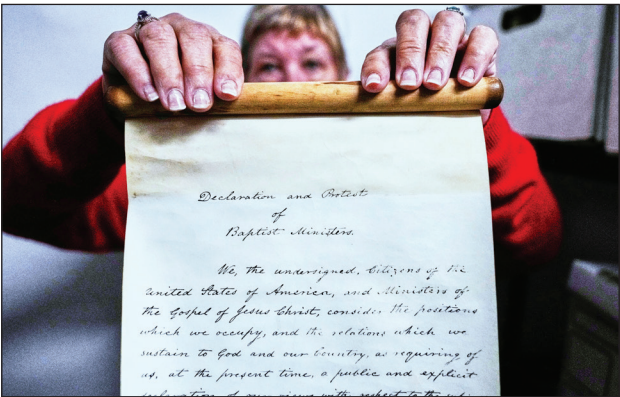 Declaration and Protest
of
Baptist Ministers.
We, the undersigned, Citizens of the
United States of America, and Ministers of
the Gospel of Jesus Christ, consider the positions
which we occupy, and the relations which we
sustain to God and our Country, as requiring of
us, at the present time, a public and explicit
declaration of our views with respect to the